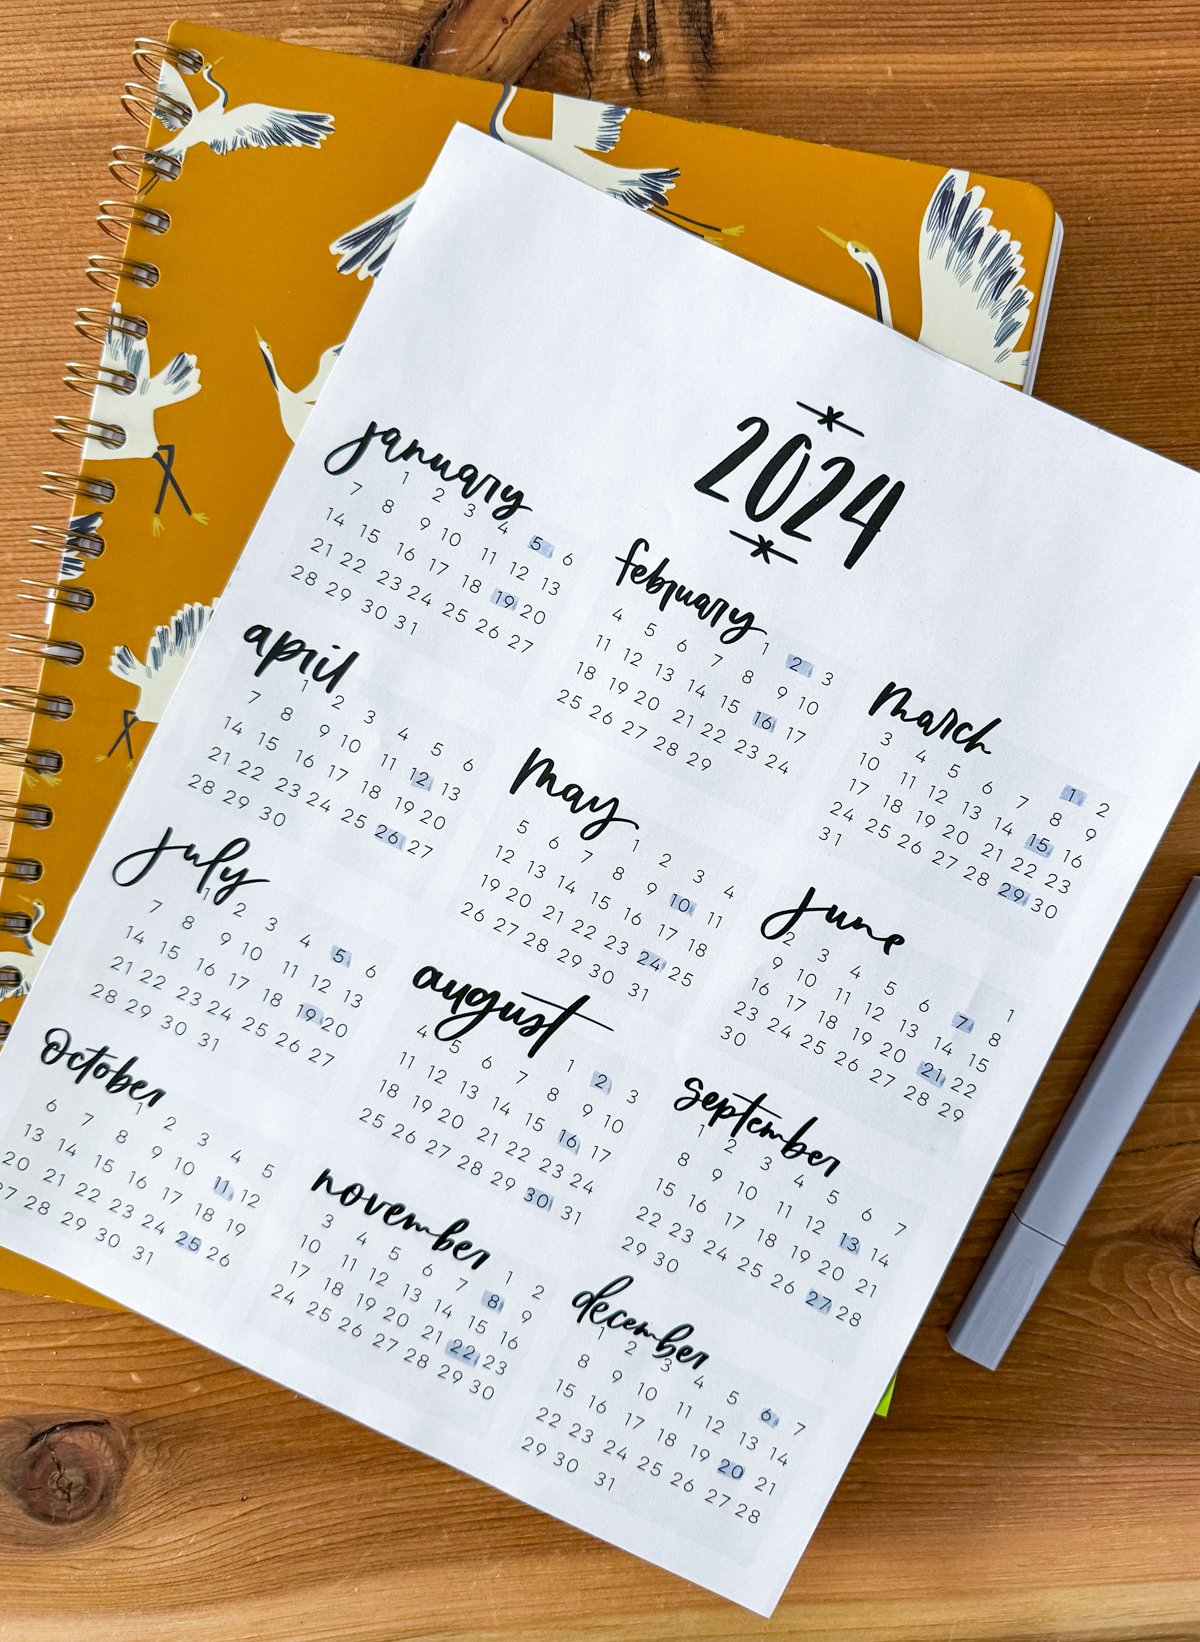 2024
january
1 2 3 4 5 6
7 8 9 10 11 12 13
14 15 16 17 18 19 20
21 22 23 24 25 26 27
28 29 30 31
february
1 2 3
4 5 6 7 8 9 10
11 12 13 14 15 16 17
18 19 20 21 22 23 24
25 26 27 28 29
march
1 2
3 4 5 6 7 8 9
10 11 12 13 14 15 16
17 18 19 20 21 22 23
24 25 26 27 28 29 30
31
april
1 2 3 4 5 6
7 8 9 10 11 12 13
14 15 16 17 18 19 20
21 22 23 24 25 26 27
28 29 30
may
1 2 3 4
5 6 7 8 9 10 11
12 13 14 15 16 17 18
19 20 21 22 23 24 25
26 27 28 29 30 31
june
1
2 3 4 5 6 7 8
9 10 11 12 13 14 15
16 17 18 19 20 21 22
23 24 25 26 27 28 29
30
july
1 2 3 4 5 6
7 8 9 10 11 12 13
14 15 16 17 18 19 20
21 22 23 24 25 26 27
28 29 30 31
august
1 2 3
4 5 6 7 8 9 10
11 12 13 14 15 16 17
18 19 20 21 22 23 24
25 26 27 28 29 30 31
september
1 2 3 4 5 6 7
8 9 10 11 12 13 14
15 16 17 18 19 20 21
22 23 24 25 26 27 28
29 30
october
1 2 3 4 5
6 7 8 9 10 11 12
13 14 15 16 17 18 19
20 21 22 23 24 25 26
27 28 29 30 31
november
1 2
3 4 5 6 7 8 9
10 11 12 13 14 15 16
17 18 19 20 21 22 23
24 25 26 27 28 29 30
december
1 2 3 4 5 6 7
8 9 10 11 12 13 14
15 16 17 18 19 20 21
22 23 24 25 26 27 28
29 30 31